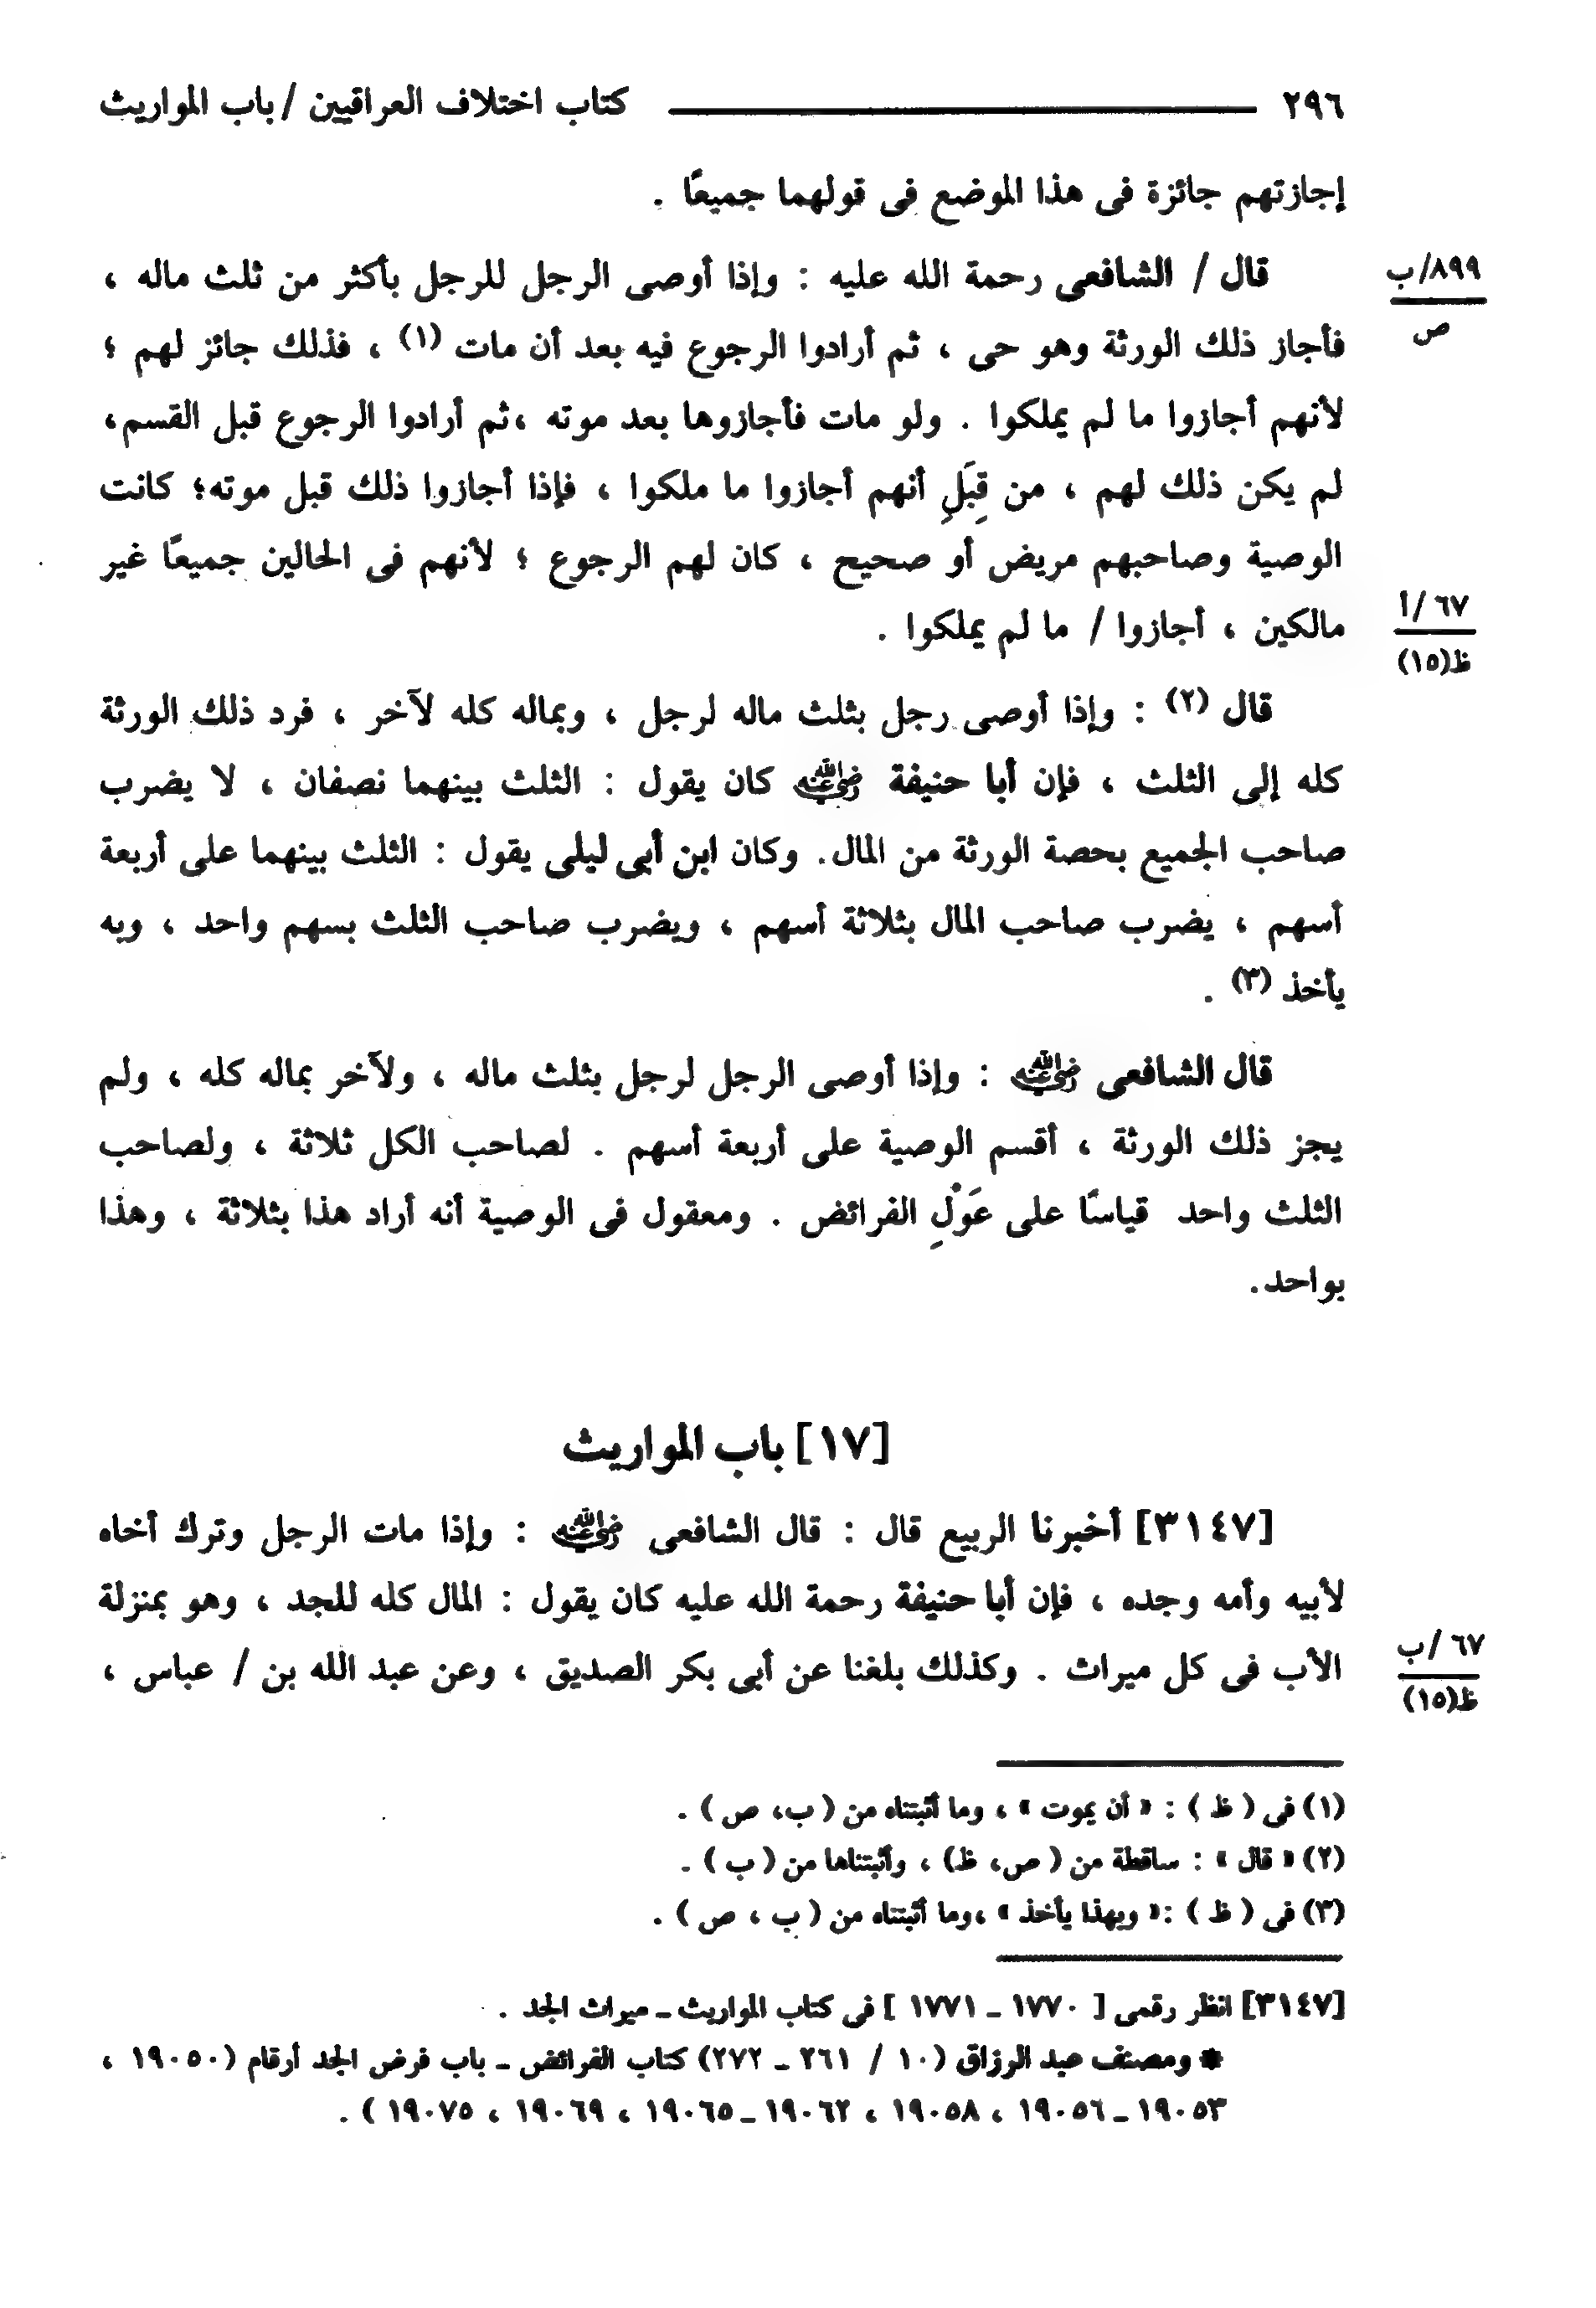 ٢٩٦ كتاب اختلاف العراقيين / باب المواريث
إجازتهم جائزة فى هذا الموضع فى قولهما جميعًا .
قال / الشافعى رحمة الله عليه : وإذا أوصى الرجل للرجل بأكثر من ثلث ماله ،
٨٩٩/ب
ص
فأجاز ذلك الورثة وهو حى ، ثم أرادوا الرجوع فيه بعد أن مات (١) ، فذلك جائز لهم ؛
لأنهم أجازوا ما لم يملكوا . ولو مات فأجازوها بعد موته ،ثم أرادوا الرجوع قبل القسم،
لم يكن ذلك لهم ، من قِبَلِ أنهم أجازوا ما ملكوا ، فإذا أجازوا ذلك قبل موته؛ كانت
الوصية وصاحبهم مريض أو صحيح ، كان لهم الرجوع ؛ لأنهم فى الحالين جميعًا غير
مالكين ، أجازوا / ما لم يملكوا .
٦٧/أ
ظ(١٥)
قال (٢) : وإذا أوصى رجل بثلث ماله لرجل ، وبماله كله لآخر ، فرد ذلك الورثة
كله إلى الثلث ، فإن أبا حنيفة رضي الله عنه كان يقول : الثلث بينهما نصفان ، لا يضرب
صاحب الجميع بحصة الورثة من المال. وكان ابن أبى ليلى يقول : الثلث بينهما على أربعة
أسهم ، يضرب صاحب المال بثلاثة أسهم ، ويضرب صاحب الثلث بسهم واحد ، وبه
يأخذ (٣) .
قال الشافعى رضي الله عنه : وإذا أوصى الرجل لرجل بثلث ماله ، ولآخر بماله كله ، ولم
يجز ذلك الورثة ، أقسم الوصية على أربعة أسهم . لصاحب الكل ثلاثة ، ولصاحب
الثلث واحد قياسًا على عَوْلِ الفرائض . ومعقول فى الوصية أنه أراد هذا بثلاثة ، وهذا
بواحد.
[١٧] باب المواريث
[٣١٤٧] أخبرنا الربيع قال : قال الشافعى رضي الله عنه : وإذا مات الرجل وترك أخاه
لأبيه وأمه وجده ، فإن أبا حنيفة رحمة الله عليه كان يقول : المال كله للجد ، وهو بمنزلة
الأب فى كل ميراث . وكذلك بلغنا عن أبى بكر الصديق ، وعن عبد الله بن / عباس ،
٦٧/ب
ظ(١٥)
(١) فى ( ظ ) : « أن يموت » ، وما أثبتناه من ( ب، ص ) .
(٢) « قال » : ساقطة من ( ص، ظ) ، وأثبتناها من ( ب ) .
(٣) فى ( ظ ) :« وبهذا يأخذ » ،وما أثبتناه من ( ب ، ص ) .
[٣١٤٧] انظر رقمى [ ١٧٧٠ ـ ١٧٧١ ] فى كتاب المواريث ـ ميراث الجد .
* ومصنف عبد الرزاق (١٠ / ٢٦١ ـ ٢٧٢) كتاب الفرائض ـ باب فرض الجد أرقام (١٩٠٥٠ ،
١٩٠٥٣ ـ ١٩٠٥٦ ، ١٩٠٥٨ ، ١٩٠٦٢ ـ ١٩٠٦٥ ، ١٩٠٦٩ ، ١٩٠٧٥ ) .